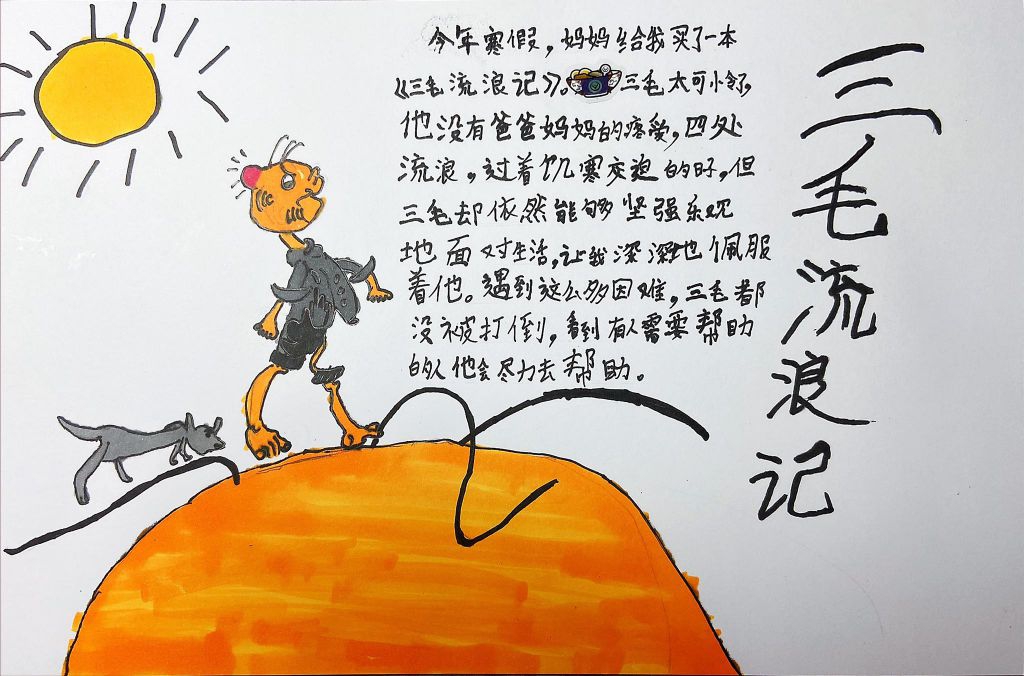 三毛流浪记
今年寒假，妈妈给我买了一本
《三毛流浪记》。三毛太可怜，
他没有爸爸妈妈的疼爱，四处
流浪。过着饥寒交迫的日子，但
三毛却依然能够坚强乐观
地面对生活，让我深深地佩服
着他。遇到这么多困难，三毛都
没被打倒，看到有人需要帮助
的人他会尽力去帮助。